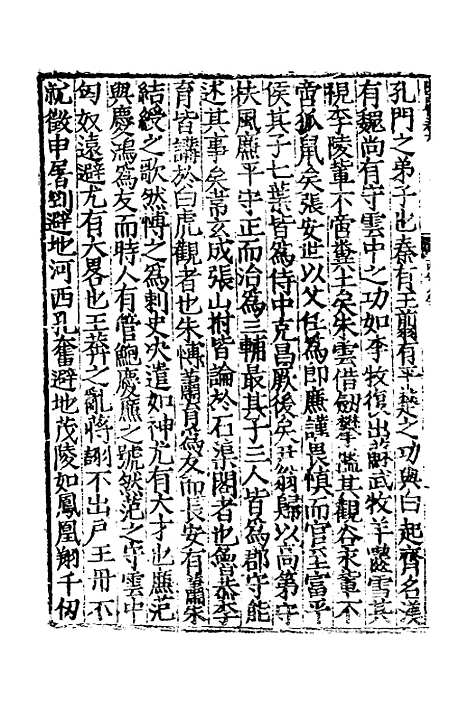 孔門之弟子也秦有王翦有平楚之功與白起齊名漢
有魏尚有守雲中之功如李牧復出蘇武牧羊齧雪其
視李陵輩不啻糞土矣朱雲借劒攀檻其觀谷永輩不
啻狐鼠矣張安世以父任為郎廉謹畏慎而官至富平
侯其子七葉皆為侍中克昌厥後矣尹翁歸以高第守
扶風廉平守正而治為三輔最其子三人皆為郡守能
述其事矣韋玄成張山拊皆論於石渠閣者也魯恭李
育皆講於白虎觀者也朱博蕭育為友而長安有蕭朱
結綬之歌然博之為刺史决遣如神尤有大才也廉范
與慶鴻為友而時人有管鮑慶廉之號然范之守雲中
匈奴遠避尤有大畧也王莽之亂蔣詡不出戶王丹不
就徵申屠剛避地河西孔奮避地茂陵如鳳凰翔千仞